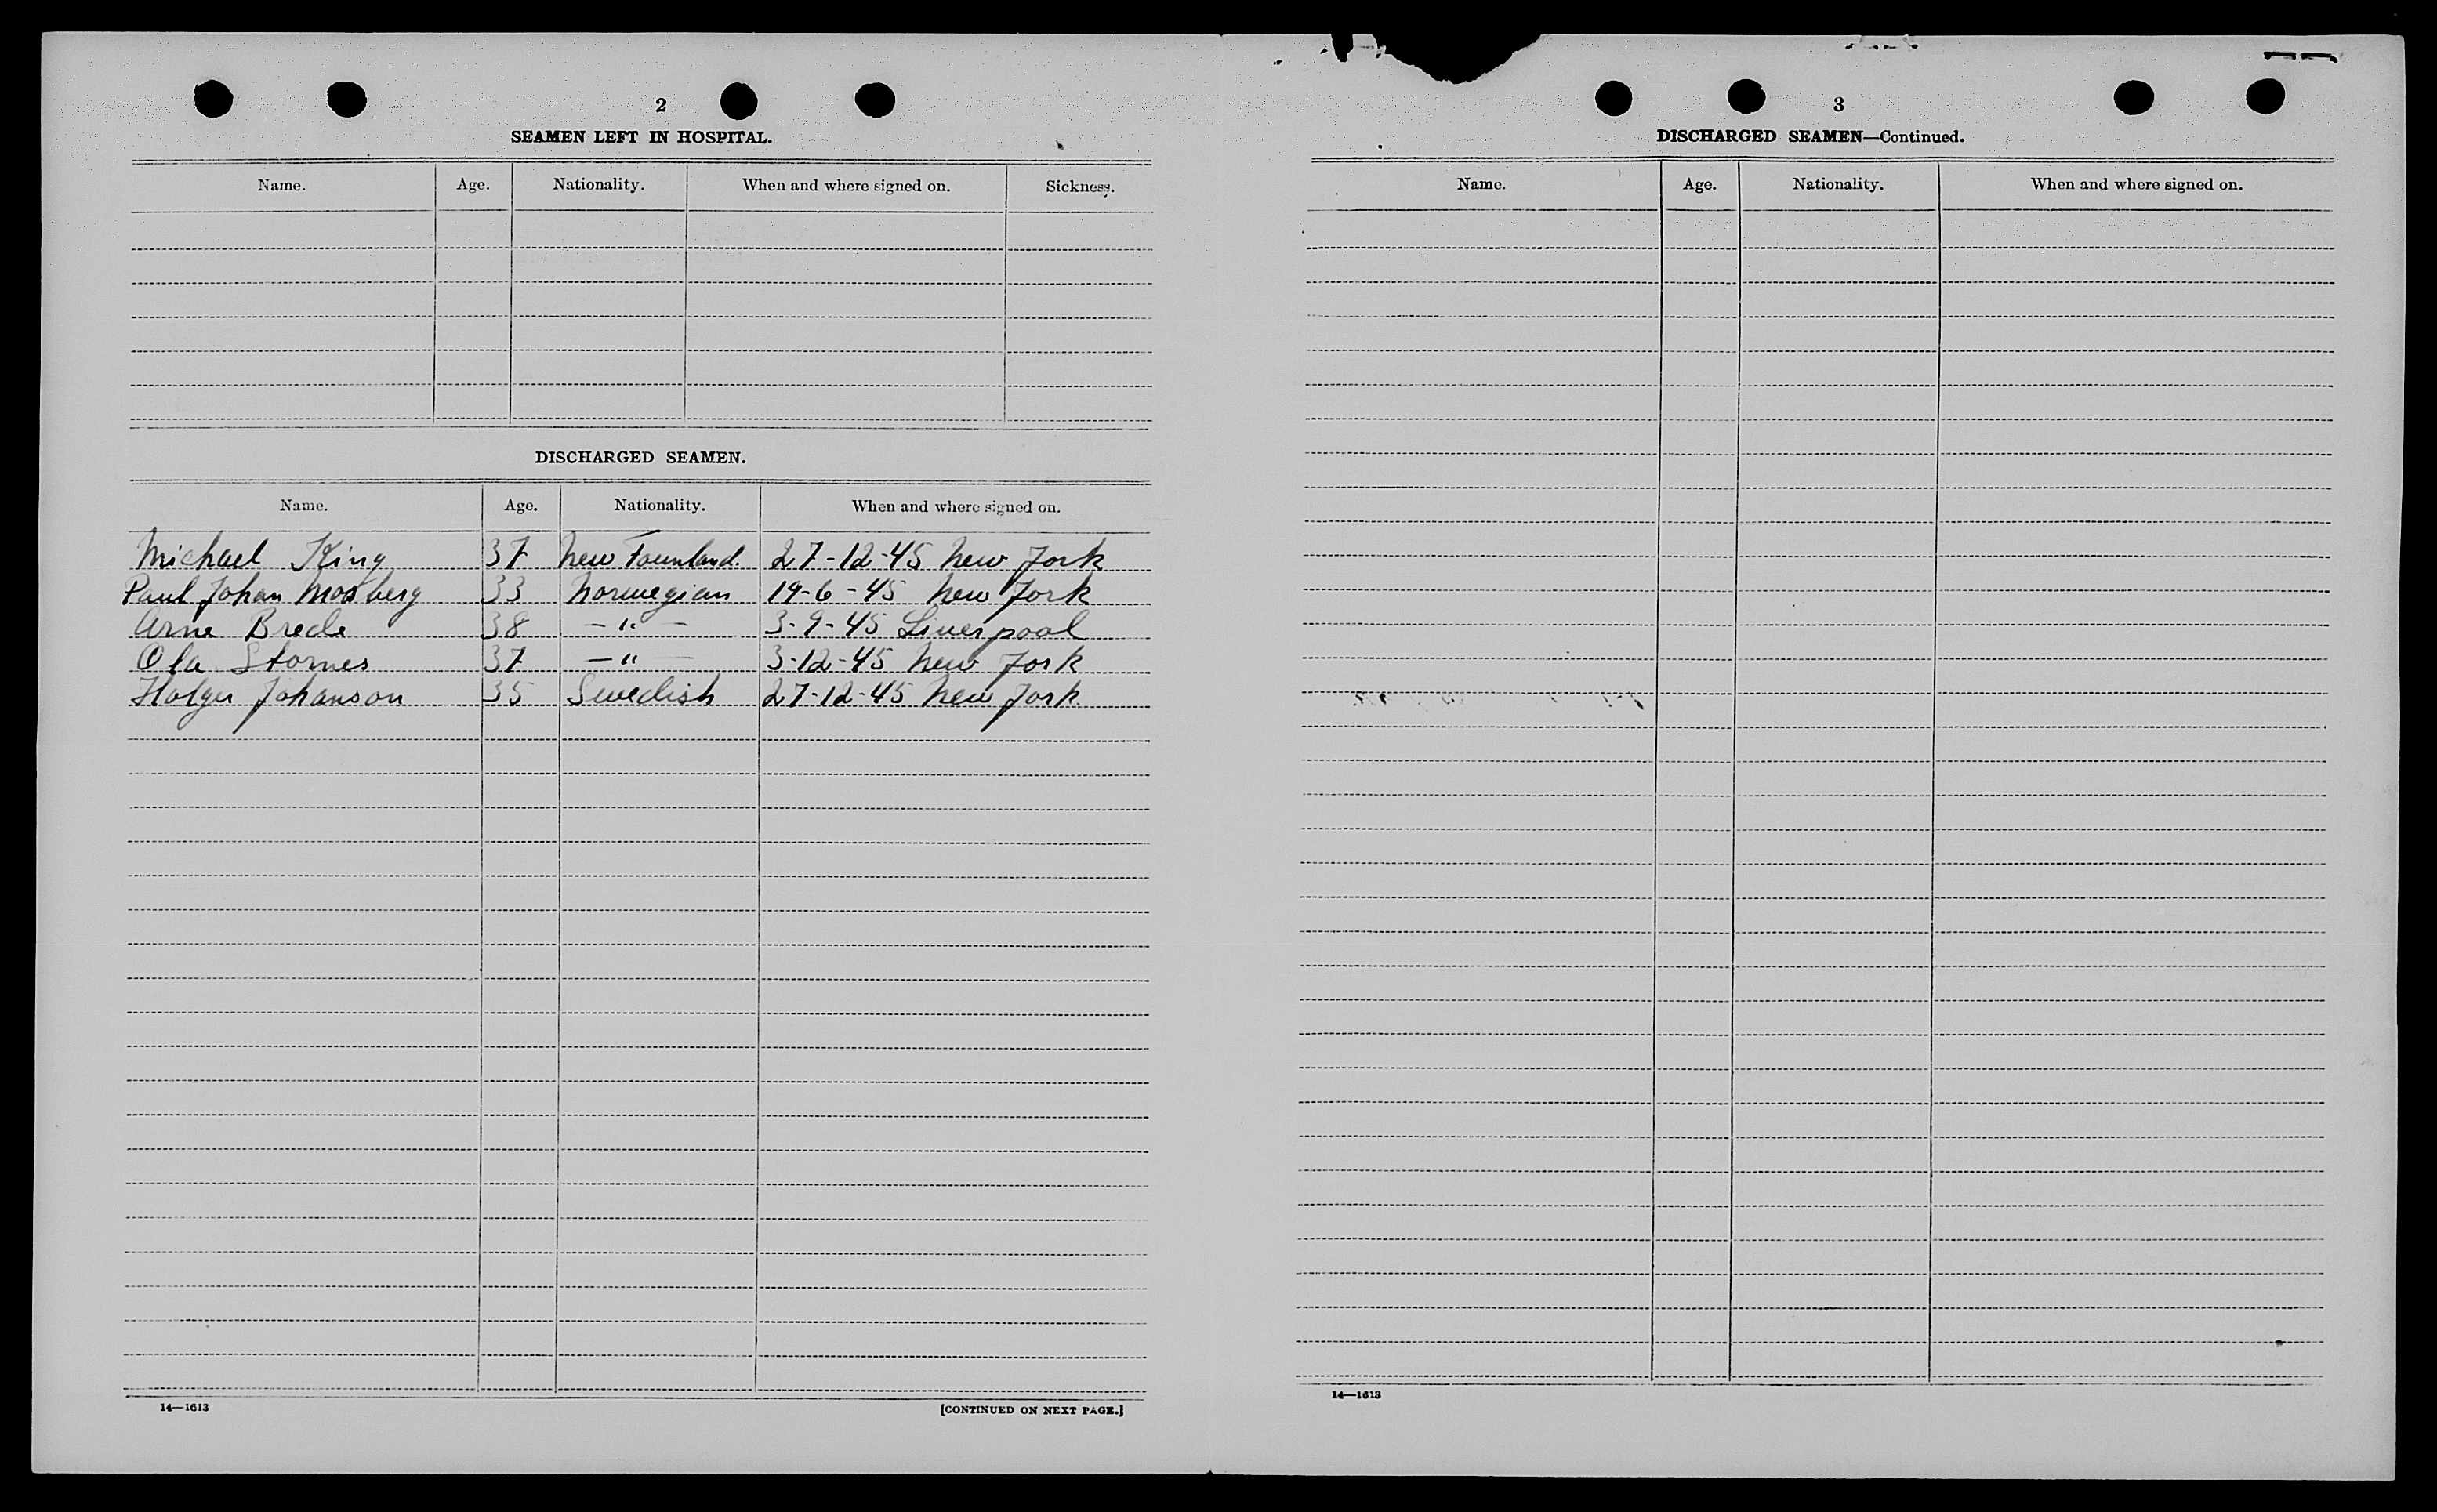 2
SEAMEN LEFT IN HOSPITAL.
Name. Age. Nationality. When and where signed on. Sickness.
DISCHARGED SEAMEN.
Name. Age. Nationality. When and where signed on.
Michael King 37 New Founland. 27-12-45 New York
Paul Johan Mosberg 33 Norwegian 19-6-45 New York
Arne Brede 38 -"- 3-9-45 Liverpool
Ola Stornes 37 -"- 3-12-45 New York
Holger Johanson 35 Swedish 27-12-45 New York
14—1613 [CONTINUED ON NEXT PAGE.]
3
DISCHARGED SEAMEN—Continued.
Name. Age. Nationality. When and where signed on.
14—1613